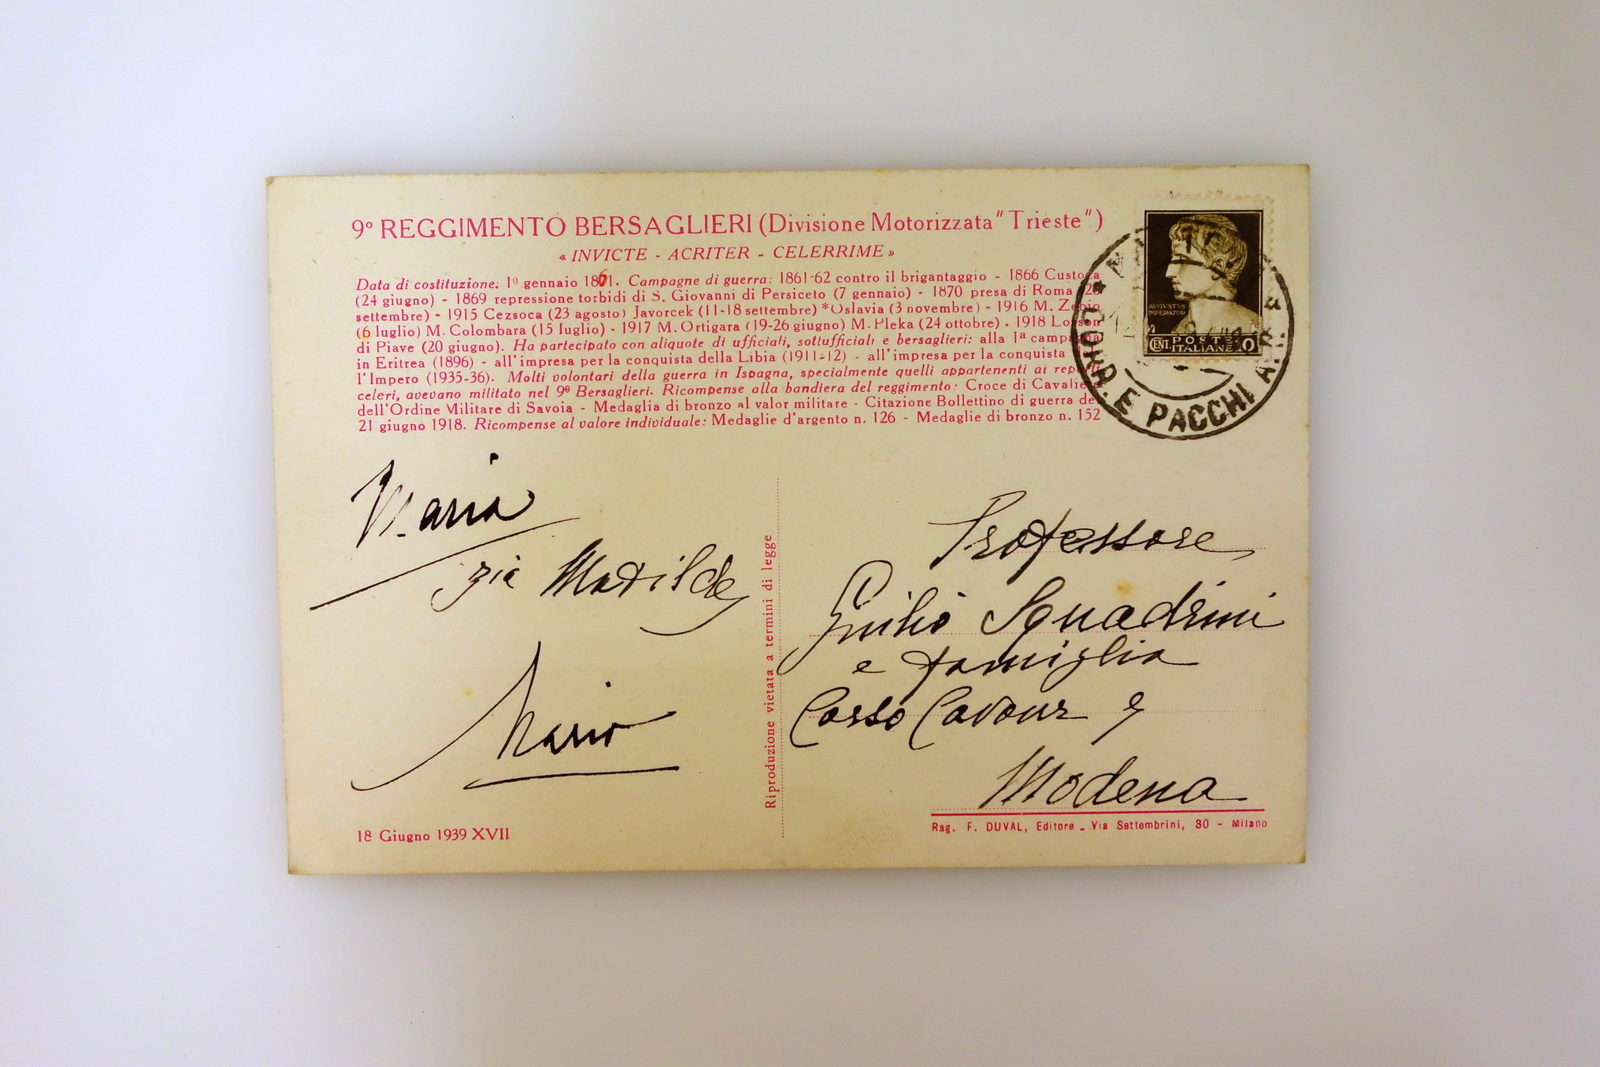 9º REGGIMENTO BERSAGLIERI (Divisione Motorizzata "Trieste")
« INVICTE - ACRITER - CELERRIME »
Data di costituzione: 1º gennaio 1861. Campagne di guerra: 1861-62 contro il brigantaggio - 1866 Custoza
(24 giugno) - 1869 repressione torbidi di S. Giovanni di Persiceto (7 gennaio) - 1870 presa di Roma (20
settembre) - 1915 Cezsoca (23 agosto) Javorcek (11-18 settembre) *Oslavia (3 novembre) - 1916 M.
(6 luglio) M. Colombara (15 luglio) - 1917 M. Ortigara (19-26 giugno) M. Pleka (24 ottobre) - 1918
di Piave (20 giugno). Ha partecipato con aliquote di ufficiali, sottufficiali e bersaglieri: alla 1ª campagna
in Eritrea (1896) - all'impresa per la conquista della Libia (1911-12) - all'impresa per la conquista
l'Impero (1935-36). Molti volontari della guerra in Ispagna, specialmente quelli appartenenti ai reparti
celeri, avevano militato nel 9º Bersaglieri. Ricompense alla bandiera del reggimento: Croce di Cavaliere
dell'Ordine Militare di Savoia - Medaglia di bronzo al valor militare - Citazione Bollettino di guerra del
21 giugno 1918. Ricompense al valore individuale: Medaglie d'argento n. 126 - Medaglie di bronzo n. 152
AUGUSTUS
IMPERATOR
CENT. POSTE 10
ITALIANE
CORR. E PACCHI
Maria
zia Matilde
Mario
Riproduzione vietata a termini di legge
Professore
Giulio Squadrini
e famiglia
Corso Cavour 9
Modena
18 Giugno 1939 XVII
Rag. F. DUVAL, Editore - Via Settembrini, 30 - Milano